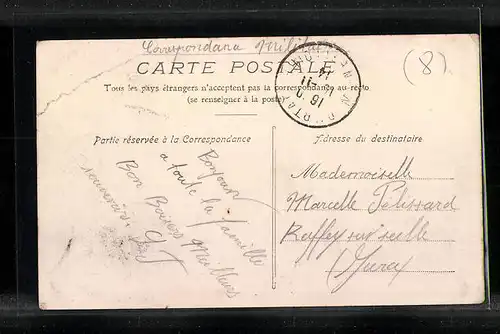 Correspondance Militaire
CARTE POSTALE
(8)
Tous les pays étrangers n'acceptent pas la correspondance au recto
(se renseigner à la poste)
Partie réservée à la Correspondance
Adresse du destinataire
Bonjour
a toute la famille
Bon Baisers Meilleurs
souvenirs.
Mademoiselle
Marcelle Pélissard
Ruffey sur seille
(Jura)